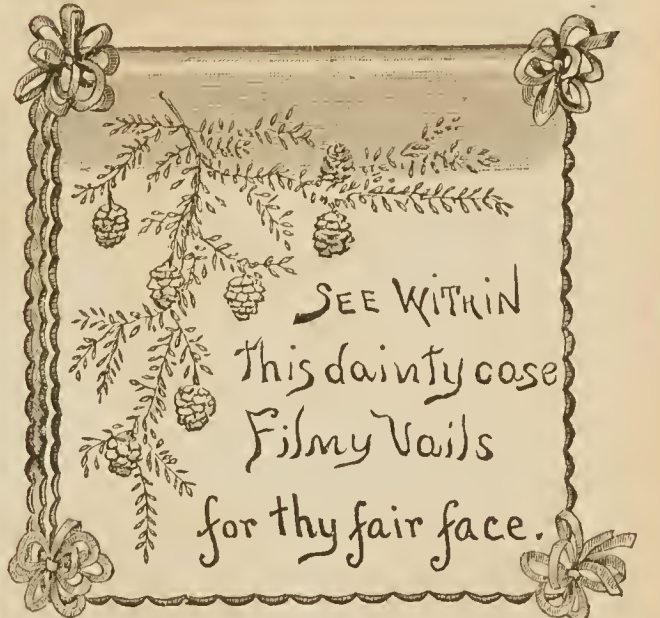 SEE WITHIN
this dainty case
Filmy Vails
for thy fair face.